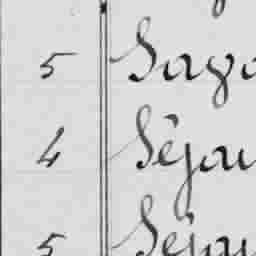 5 Sago
4 Séjou
5 Séjou